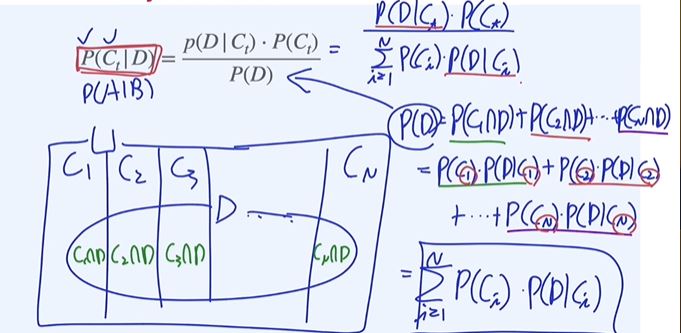 P(Cₜ|D) = p(D|Cₜ)·P(Cₜ) / P(D) = P(D|Cₜ)·P(Cₜ) / ∑ᵢ₌₁ᴺ P(Cᵢ)·P(D|Cᵢ)
P(A|B)
P(D) = P(C₁∩D)+P(C₂∩D)+···+P(C_N∩D)
= P(C₁)·P(D|C₁)+P(C₂)·P(D|C₂)
+···+P(C_N)·P(D|C_N)
= ∑ᵢ₌₁ᴺ P(Cᵢ)·P(D|Cᵢ)
U
C₁ C₂ C₃ C_N
D ····
C₁∩D C₂∩D C₃∩D C_N∩D